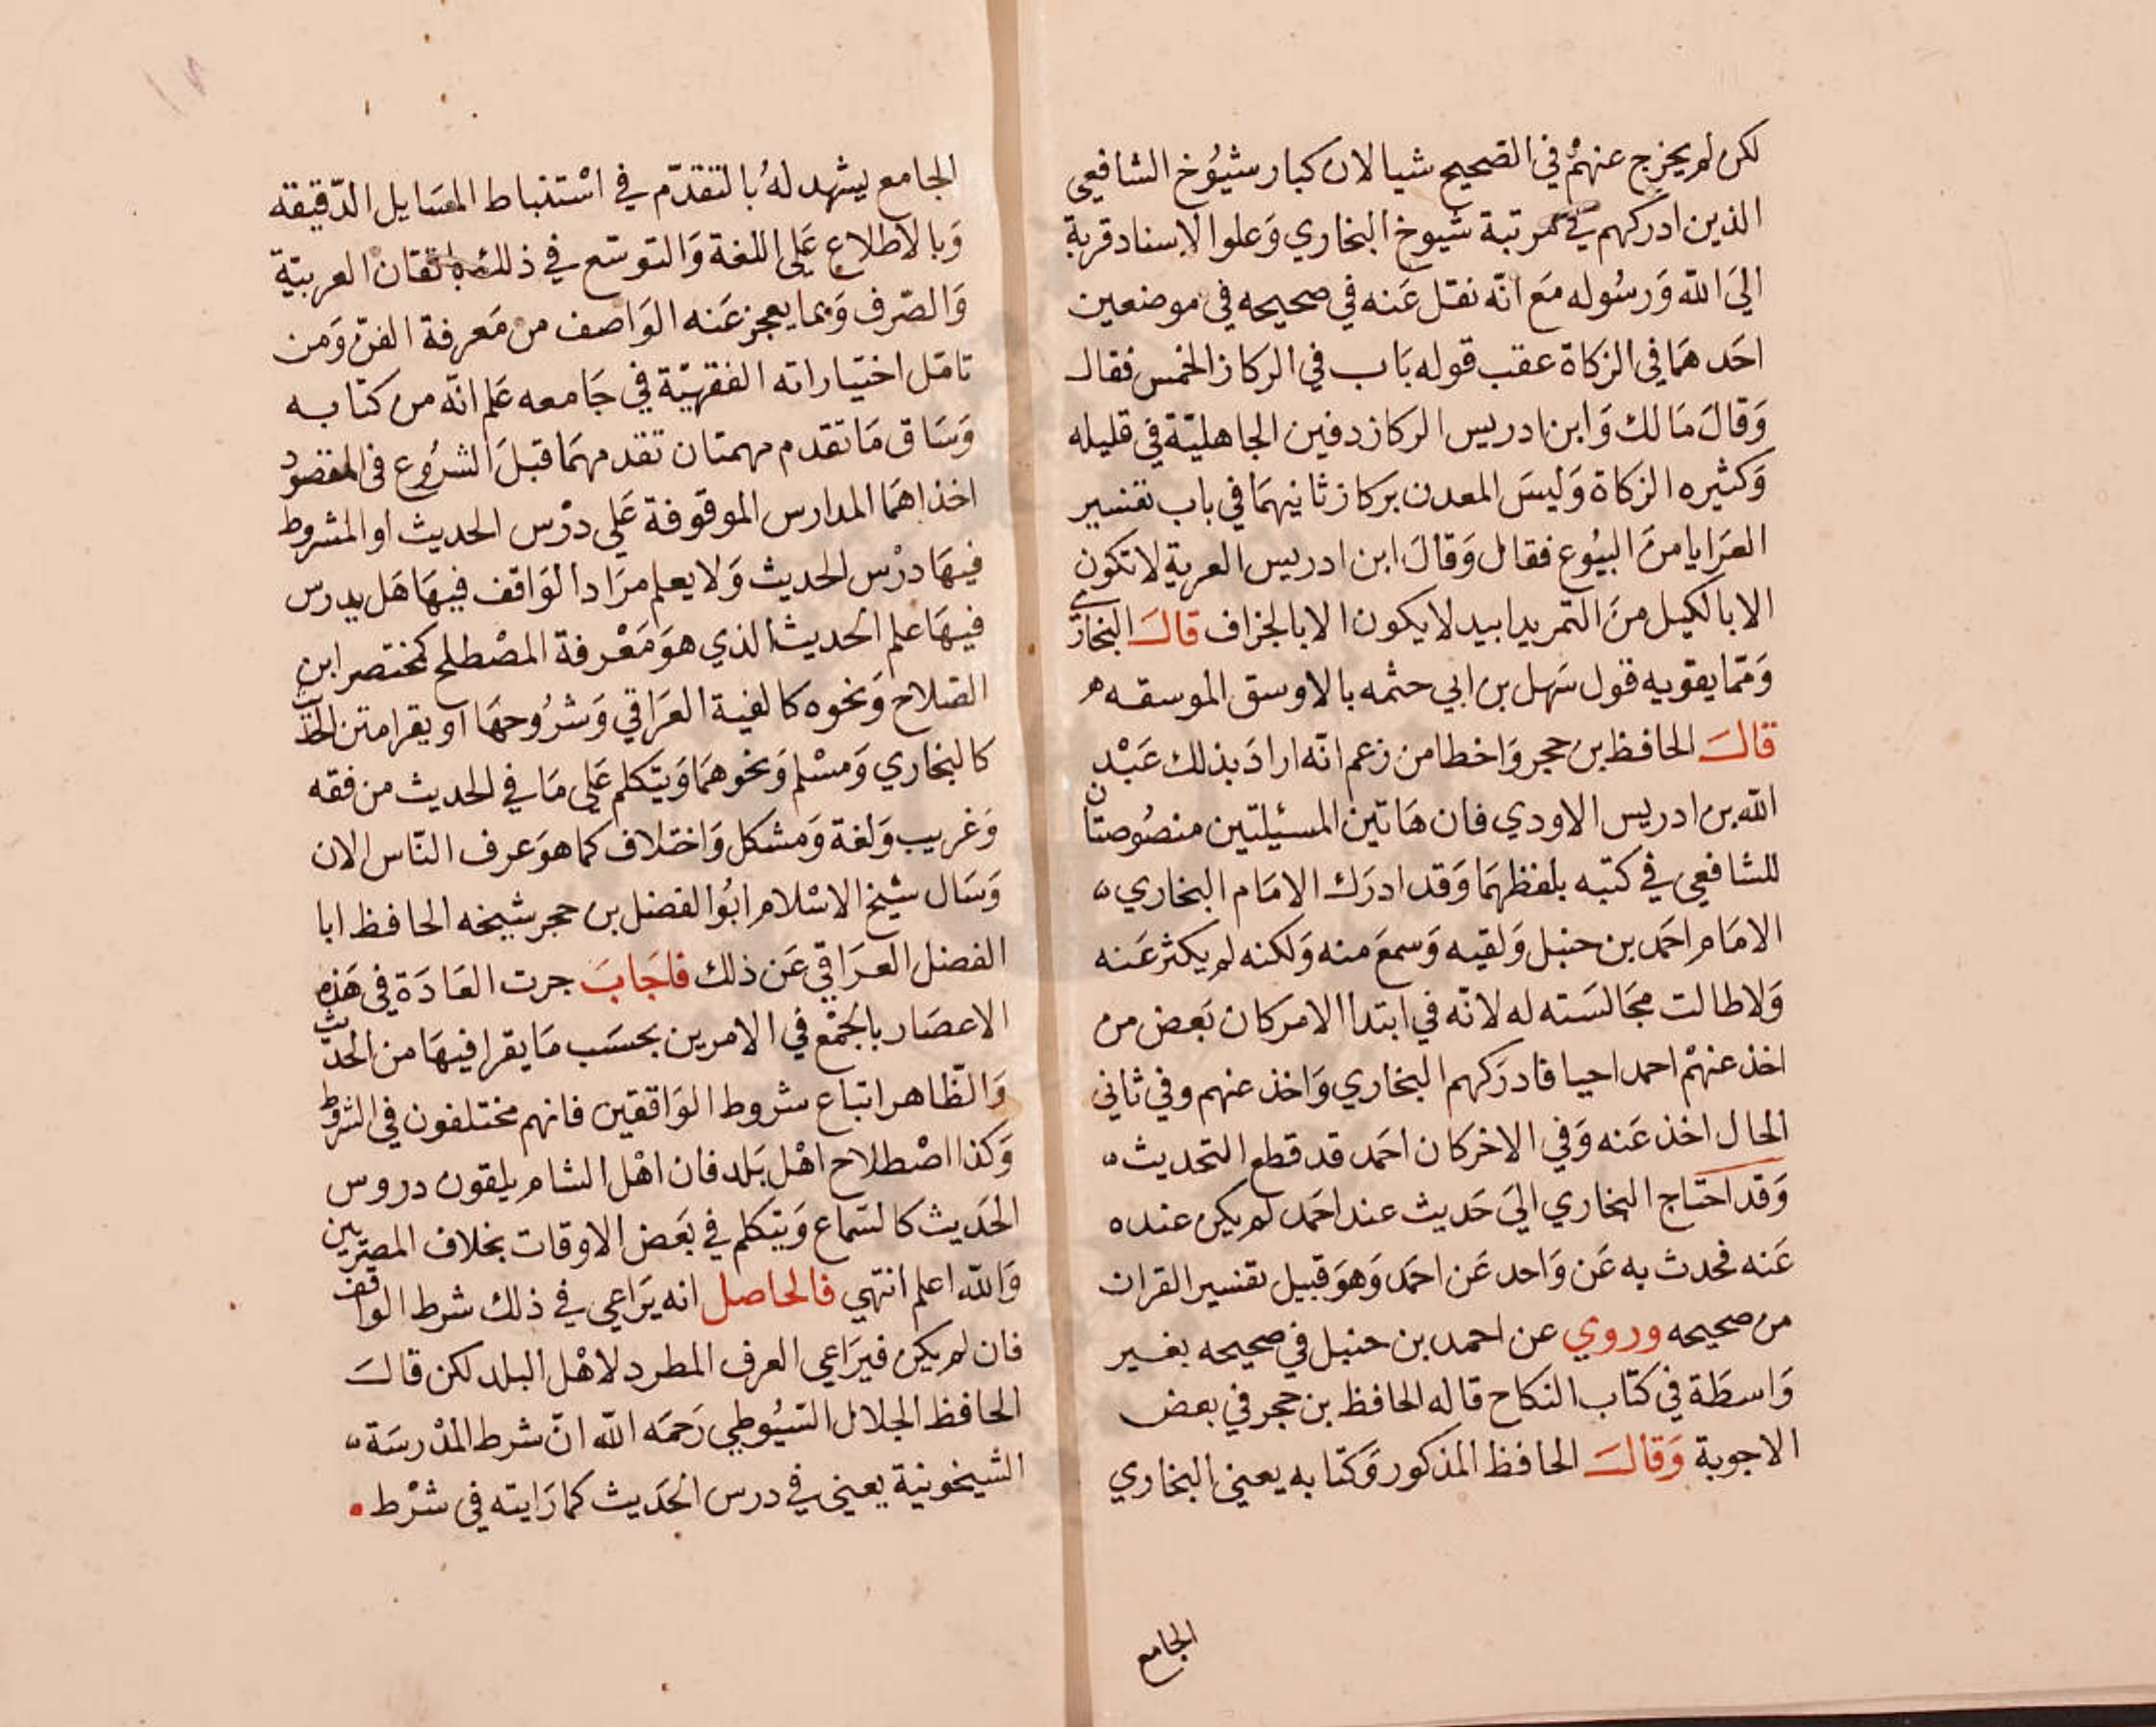 لكن لم يخرج عنهم في الصحيح شيا لان كبار شيوخ الشافعي
الذين ادركهم في مرتبة شيوخ البخاري وعلوا الاسناد قربة
الي الله ورسوله مع انه نقل عنه في صحيحه في موضعين
احدهما في الزكاة عقب قوله باب في الركاز الخمس فقال
وقال مالك وابن ادريس الركاز دفين الجاهلية في قليله
وكثيره الزكاة وليس المعدن بركاز ثانيهما في باب تفسير
العرايا من البيوع فقال وقال ابن ادريس العرية لا تكون
الا بالكيل من التمر يدا بيد لا يكون الا بالجزاف قال البخاري
ومما يقويه قول سهل بن ابي حثمه بالاوسق الموسقه
قال الحافظ بن حجر واخطا من زعم انه اراد بذلك عبد
الله بن ادريس الاودي فان هاتين المسيلتين منصوصتان
للشافعي في كتبه بلفظهما وقد ادرك الامام البخاري
الامام احمد بن حنبل ولقيه وسمع منه ولكنه لم يكثر عنه
ولا طالت مجالسته له لانه في ابتدا الامر كان بعض من
اخذ عنهم احمد احيا فادركهم البخاري واخذ عنهم وفي ثاني
الحال اخذ عنه وفي الاخر كان احمد قد قطع التحديث
وقد احتاج البخاري الي حديث عند احمد لم يكن عنده
عنه فحدث به عن واحد عن احمد وهو قبيل تفسير القران
من صحيحه وروي عن احمد بن حنبل في صحيحه بغير
واسطة في كتاب النكاح قاله الحافظ بن حجر في بعض
الاجوبة وقال الحافظ المذكور وكتابه يعني البخاري
الجامع
الجامع يشهد له بالتقدم في استنباط المسايل الدقيقة
وبالاطلاع علي اللغة والتوسع في ذلك باتقان العربية
والصرف وبما يعجز عنه الواصف من معرفة الفن ومن
تامل اختياراته الفقهية في جامعه علم انه من كتابه
وساق ما تقدم مهمتان تقدمهما قبل الشروع في المقصود
اخذاهما المدارس الموقوفة علي درس الحديث او المشروط
فيها درس الحديث ولا يعلم مراد الواقف فيها هل يدرس
فيها علم الحديث الذي هو معرفة المصطلح كمختصر ابن
الصلاح ونحوه كالفية العراقي وشروحها او يقرا متن
كالبخاري ومسلم ونحوهما ويتكلم علي ما في الحديث من فقه
وغريب ولغة ومشكل واختلاف كما هو عرف الناس الان
وسال شيخ الاسلام ابو الفضل بن حجر شيخه الحافظ ابا
الفضل العراقي عن ذلك فاجاب جرت العادة في هذه
الاعصار بالجمع في الامرين بحسب ما يقرا فيها من الحديث
والظاهر اتباع شروط الواقفين فانهم مختلفون في الشروط
وكذا اصطلاح اهل بلد فان اهل الشام يلقون دروس
الحديث كالسماع ويتكلم في بعض الاوقات بخلاف المصريين
والله اعلم انتهي فالحاصل انه يراعي في ذلك شرط الواقف
فان لم يكن فيراعي العرف المطرد لاهل البلد لكن قال
الحافظ الجلال السيوطي رحمه الله ان شرط المدرسة
الشيخونية يعني في درس الحديث كما رايته في شرط